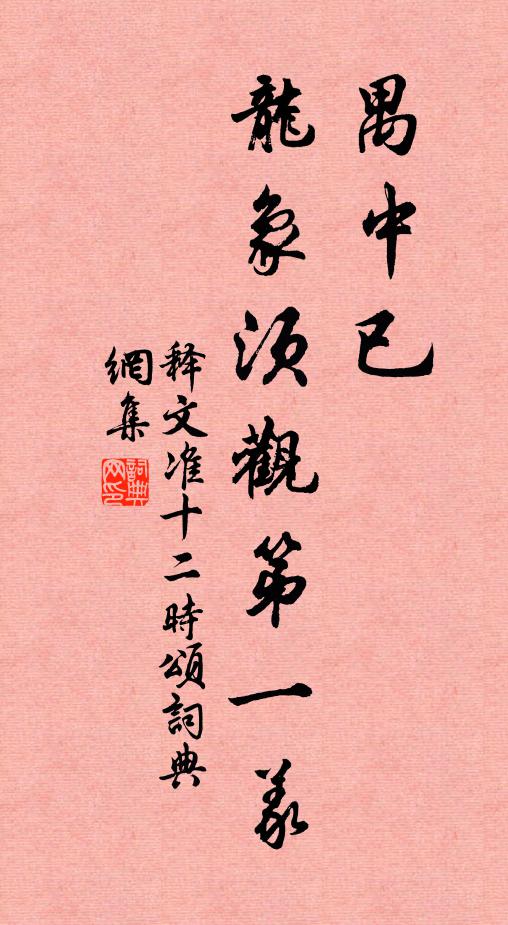 禺中巳
龍象須觀第一義
释文准十二時頌詞典
網集
詞典網印